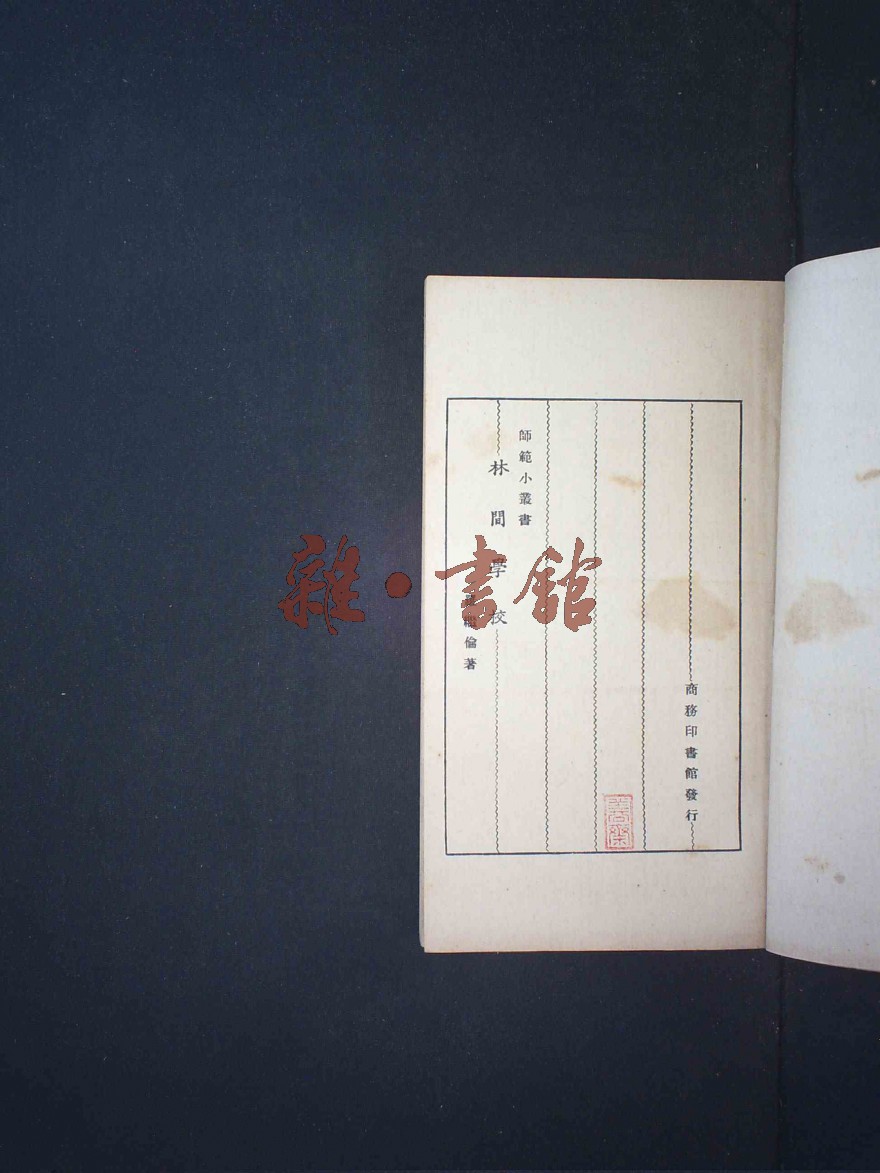 師範小叢書
林間學校
倫著
商務印書館發行
雜·書館